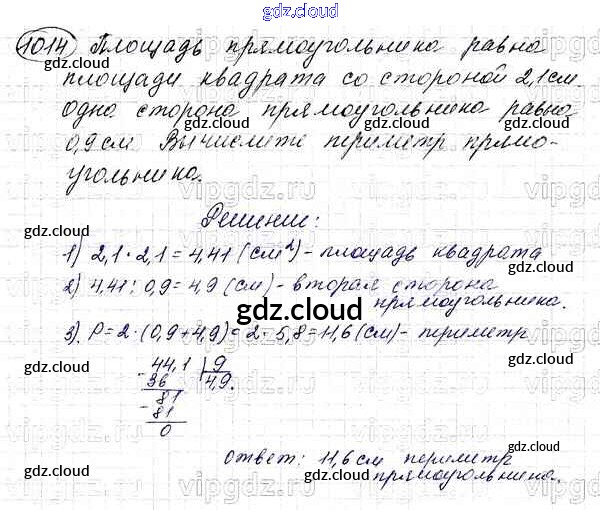 gdz.cloud
1014 Площадь прямоугольника равна
площади квадрата со стороной 2,1 см.
Одна сторона прямоугольника равна
0,9 см Вычислите периметр прямо-
угольника.
Решение:
1) 2,1 · 2,1 = 4,41 (см²) - площадь квадрата
2) 4,41 : 0,9 = 4,9 (см) - вторая сторона
прямоугольника.
3) P = 2 · (0,9 + 4,9) = 2 · 5,8 = 11,6 (см) - периметр
gdz.cloud
44,1 9
- 36 4,9.
81
- 81
0
Ответ: 11,6 см периметр
прямоугольника.
gdz.cloud